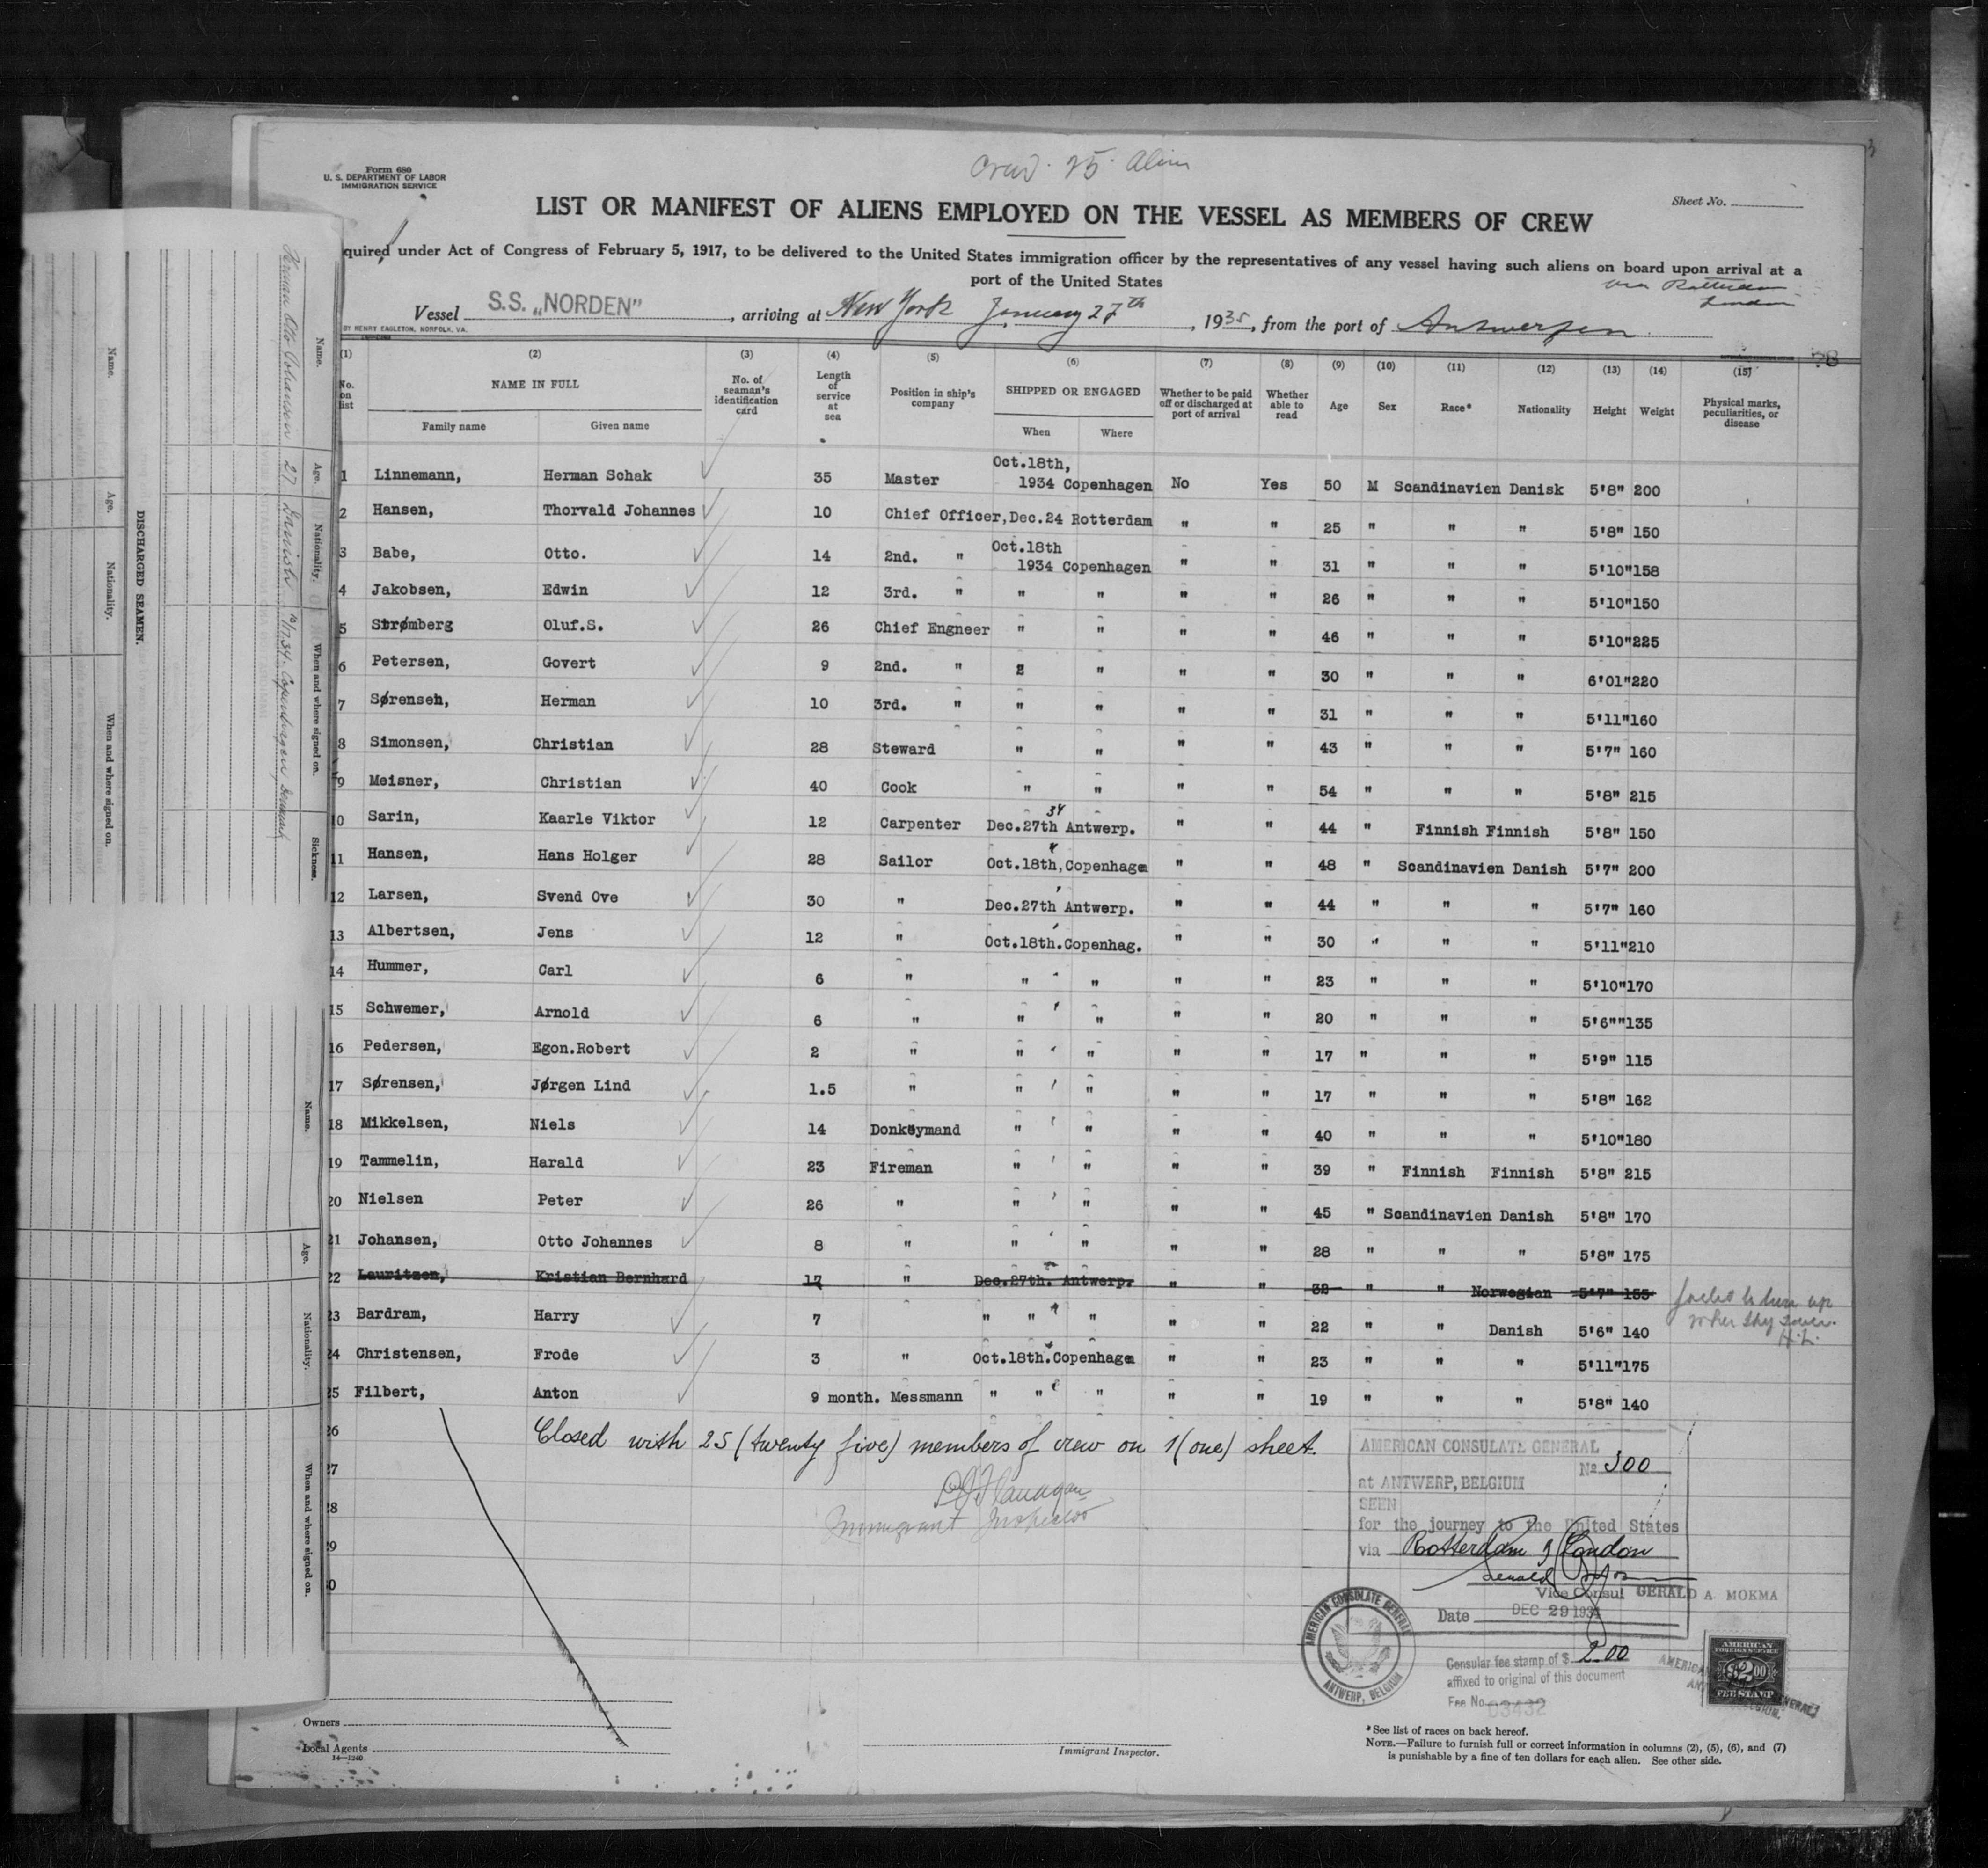 Crew. 25. Alien
Form 680
U. S. DEPARTMENT OF LABOR
IMMIGRATION SERVICE
Sheet No.
LIST OR MANIFEST OF ALIENS EMPLOYED ON THE VESSEL AS MEMBERS OF CREW
quired under Act of Congress of February 5, 1917, to be delivered to the United States immigration officer by the representatives of any vessel having such aliens on board upon arrival at a
port of the United States
via Rotterdam
London
Vessel S.S. „NORDEN", arriving at New York January 27th, 1935, from the port of Antwerpen
BY HENRY EAGLETON, NORFOLK, VA.
(1) (2) (3) (4) (5) (6) (7) (8) (9) (10) (11) (12) (13) (14) (15)
No. on list NAME IN FULL No. of seaman's identification card Length of service at sea Position in ship's company SHIPPED OR ENGAGED Whether to be paid off or discharged at port of arrival Whether able to read Age Sex Race* Nationality Height Weight Physical marks, peculiarities, or disease
Family name Given name When Where
Oct.18th,
1 Linnemann, Herman Schak 35 Master 1934 Copenhagen No Yes 50 M Scandinavien Danisk 5'8" 200
2 Hansen, Thorvald Johannes 10 Chief Officer, Dec.24 Rotterdam " " 25 " " " 5'8" 150
Oct.18th
3 Babe, Otto. 14 2nd. " 1934 Copenhagen " " 31 " " " 5'10" 158
4 Jakobsen, Edwin 12 3rd. " " " " " 26 " " " 5'10" 150
5 Strømberg Oluf.S. 26 Chief Engneer " " " " 46 " " " 5'10" 225
6 Petersen, Govert 9 2nd. " 2 " " " 30 " " " 6'01" 220
7 Sørensen, Herman 10 3rd. " " " " " 31 " " " 5'11" 160
8 Simonsen, Christian 28 Steward " " " " 43 " " " 5'7" 160
9 Meisner, Christian 40 Cook " " " " 54 " " " 5'8" 215
34
10 Sarin, Kaarle Viktor 12 Carpenter Dec.27th Antwerp. " " 44 " Finnish Finnish 5'8" 150
11 Hansen, Hans Holger 28 Sailor Oct.18th, Copenhage " " 48 " Scandinavien Danish 5'7" 200
12 Larsen, Svend Ove 30 " Dec.27th Antwerp. " " 44 " " " 5'7" 160
13 Albertsen, Jens 12 " Oct.18th. Copenhag. " " 30 " " " 5'11" 210
14 Hummer, Carl 6 " " " " " 23 " " " 5'10" 170
15 Schwemer, Arnold 6 " " " " " 20 " " " 5'6"" 135
16 Pedersen, Egon.Robert 2 " " " " " 17 " " " 5'9" 115
17 Sørensen, Jørgen Lind 1.5 " " " " " 17 " " " 5'8" 162
18 Mikkelsen, Niels 14 Donkeymand " " " " 40 " " " 5'10" 180
19 Tammelin, Harald 23 Fireman " " " " 39 " Finnish Finnish 5'8" 215
20 Nielsen Peter 26 " " " " " 45 " Scandinavien Danish 5'8" 170
21 Johansen, Otto Johannes 8 " " " " " 28 " " " 5'8" 175
22 Lauritzen, Kristian Bernhard 17 " Dec.27th. Antwerp. " " 32 " " Norwegian 5'7" 155
23 Bardram, Harry 7 " " " " " 22 " " Danish 5'6" 140
24 Christensen, Frode 3 " Oct.18th. Copenhage " " 23 " " " 5'11" 175
25 Filbert, Anton 9 month. Messmann " " " " " 19 " " " 5'8" 140
26 Closed with 25 (twenty five) members of crew on 1 (one) sheet.
27
28
29
30
Immigrant Inspector
AMERICAN CONSULATE GENERAL
No 300
at ANTWERP, BELGIUM
SEEN
for the journey to the United States
via Rotterdam & London
Vice Consul GERALD A. MOKMA
Date DEC 29 1934
AMERICAN CONSULATE GENERAL
ANTWERP, BELGIUM
Consular fee stamp of $ 2.00
affixed to original of this document
Fee No. 03432
AMERICAN
FOREIGN SERVICE
$2.00
FEE STAMP
Owners
Local Agents
14—1240
Immigrant Inspector.
*See list of races on back hereof.
NOTE.—Failure to furnish full or correct information in columns (2), (5), (6), and (7)
is punishable by a fine of ten dollars for each alien. See other side.
DISCHARGED SEAMEN.
Name. Age. Nationality. When and where signed on.
Name. Age. Nationality. When and where signed on. Sickness.
Herman Otto Johanson 27 Danish 10/17 34. Copenhagen Denmark
Name. Age. Nationality. When and where signed on.